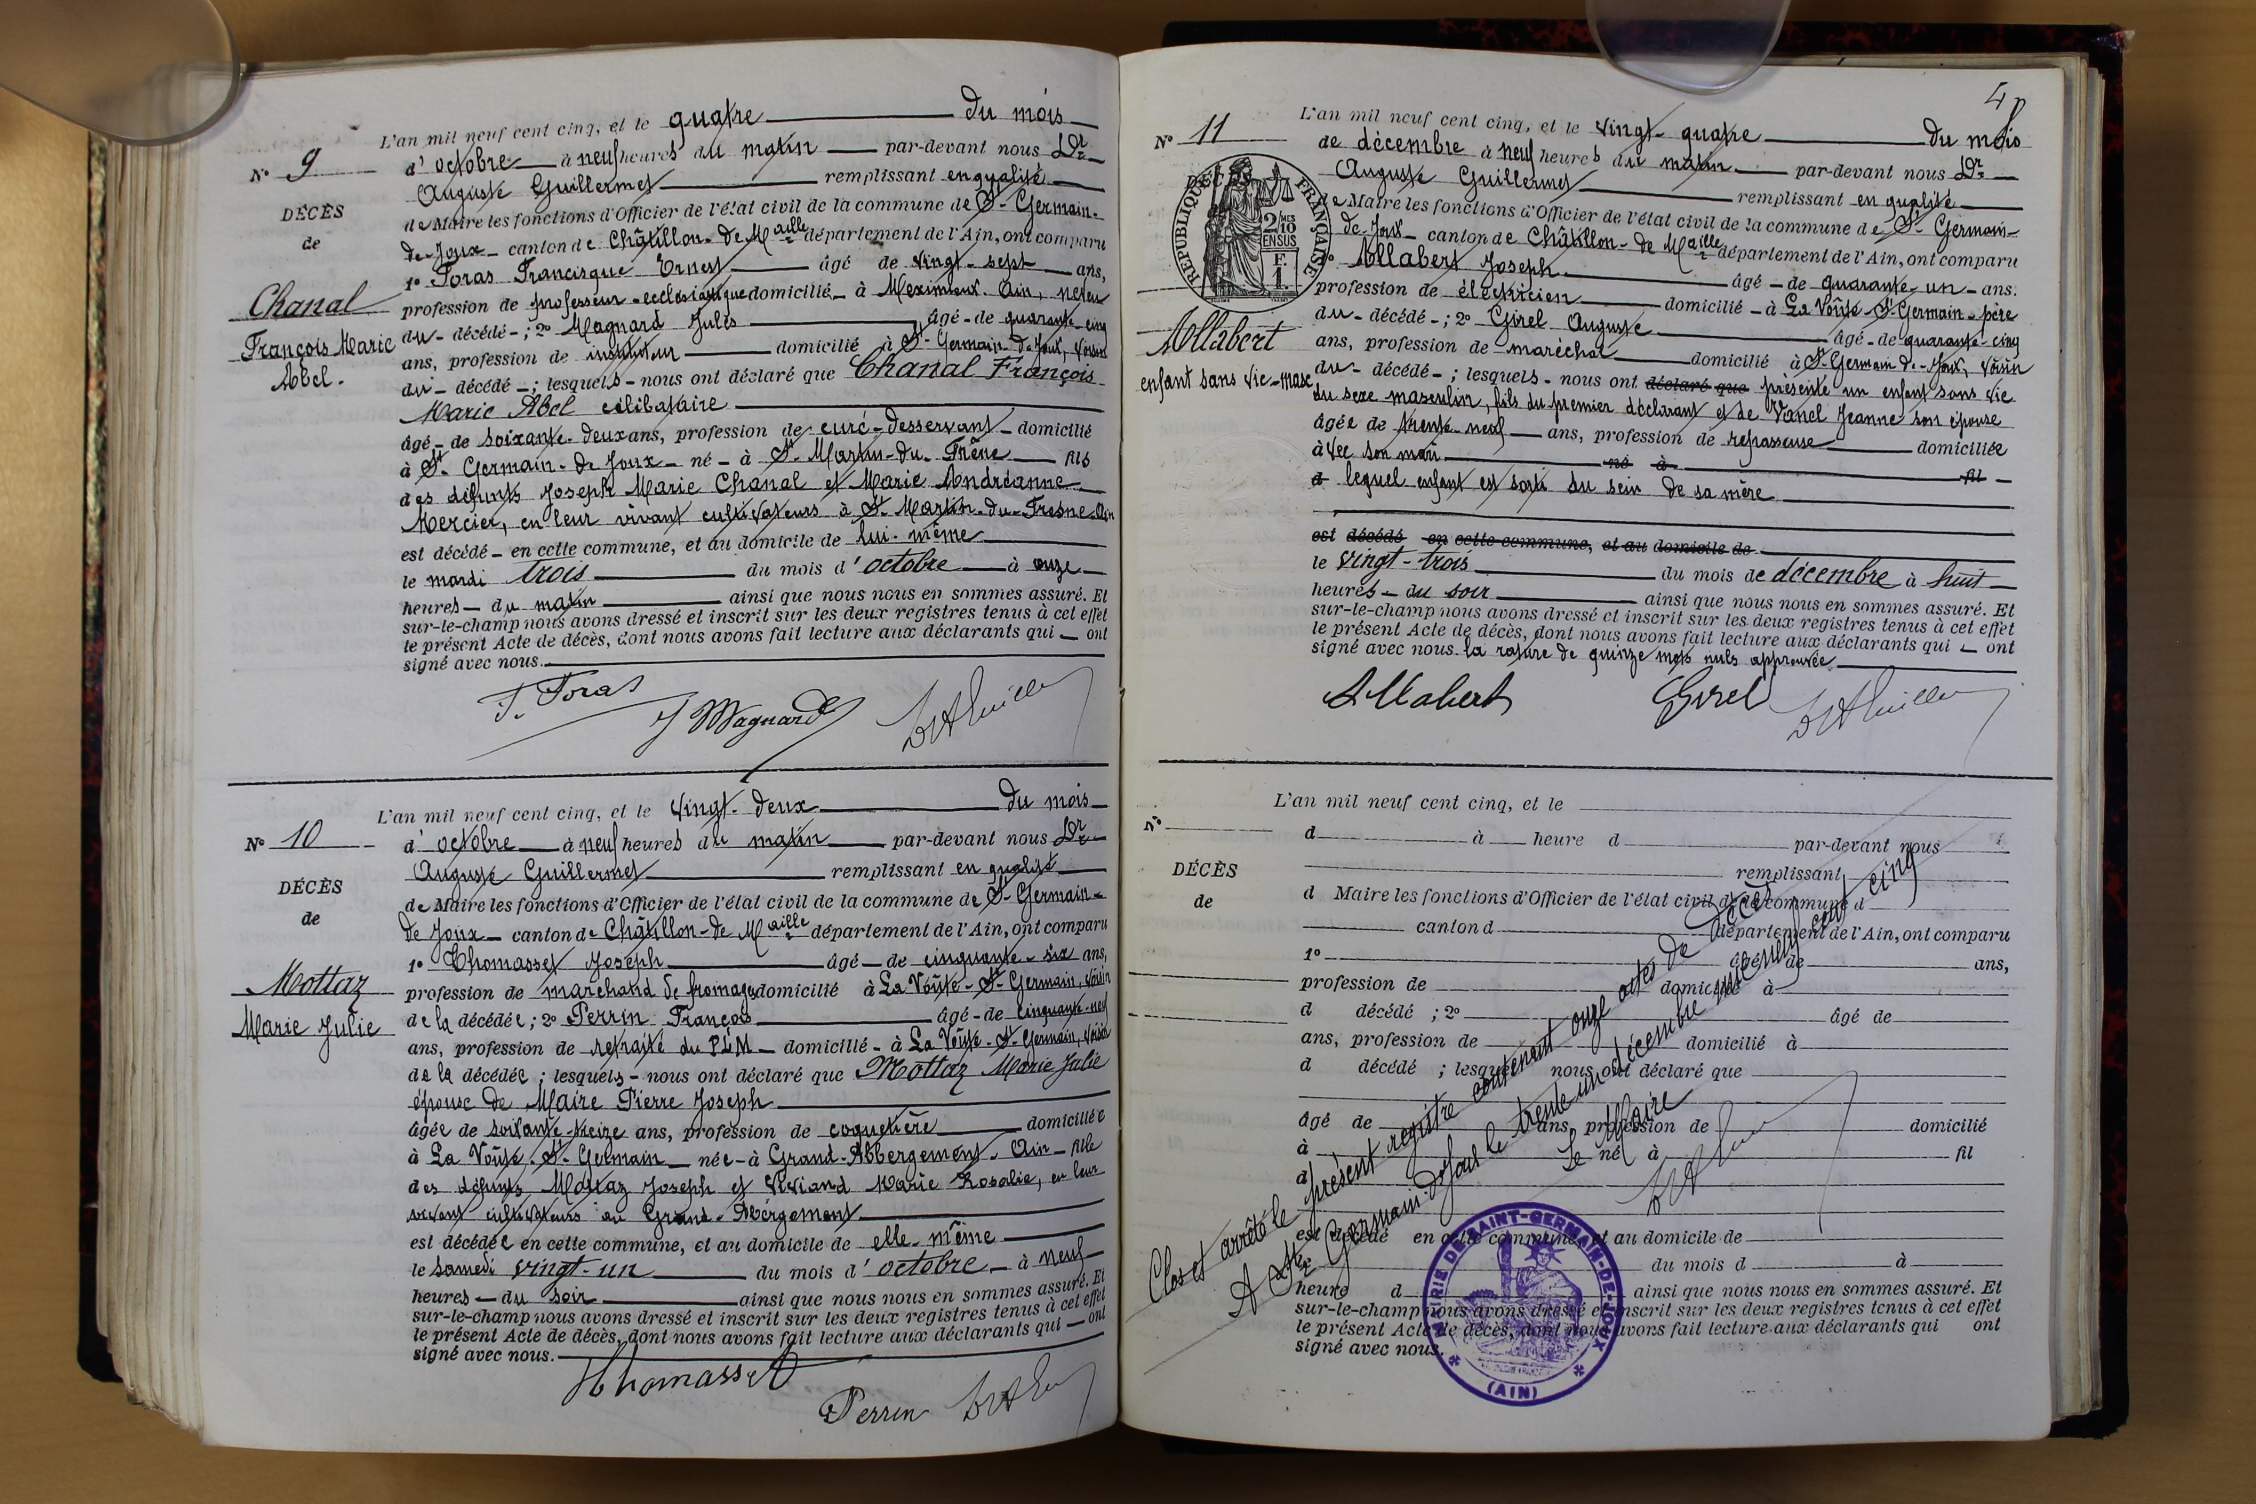 L'an mil neuf cent cinq, et le quatre du mois
N° 9
d'octobre à neuf heures du matin par-devant nous Dr
Auguste Guillermet remplissant en qualité
DÉCÈS
de Maire les fonctions d'Officier de l'état civil de la commune de St Germain-
de
de-Joux canton de Châtillon-de-Maille département de l'Ain, ont comparu
1° Foras Francisque Ernest âgé de vingt-sept ans,
Chanal
profession de professeur ecclésiastique domicilié à Meximieux Ain, neveu
François Marie
Abel.
du décédé ; 2° Magnard Jules âgé de quarante-cinq
ans, profession de instituteur domicilié à St Germain-de-Joux, voisin
du décédé ; lesquels nous ont déclaré que Chanal François
Marie Abel célibataire
âgé de soixante-deux ans, profession de curé-desservant domicilié
à St Germain-de-Joux né à St Martin-du-Frêne fils
des défunts Joseph Marie Chanal et Marie Andréanne
Mercier, en leur vivant cultivateurs à St Martin-du-Fresne-Ain
est décédé en cette commune, et au domicile de lui-même
le mardi trois du mois d'octobre à onze
heures du matin ainsi que nous nous en sommes assuré. Et
sur-le-champ nous avons dressé et inscrit sur les deux registres tenus à cet effet
le présent Acte de décès, dont nous avons fait lecture aux déclarants qui ont
signé avec nous.
F. Foras
J Magnard
L'an mil neuf cent cinq, et le vingt-deux du mois
N° 10
d'octobre à neuf heures du matin par-devant nous Dr
Auguste Guillermet remplissant en qualité
DÉCÈS
de Maire les fonctions d'Officier de l'état civil de la commune de St Germain-
de
de Joux canton de Châtillon-de-Maille département de l'Ain, ont comparu
1° Thomasset Joseph âgé de cinquante-six ans,
Mottaz
Marie Julie
profession de marchand de fromages domicilié à La Voûte-St Germain, voisin
de la décédée ; 2° Perrin François âgé de cinquante-neuf
ans, profession de retraité du PLM domicilié à La Voûte-St Germain, voisin
de la décédée ; lesquels nous ont déclaré que Mottaz Marie Julie
épouse de Maire Pierre Joseph
âgée de soixante-treize ans, profession de coquetière domiciliée
à La Voûte, St Germain née à Grand-Abbergement, Ain fille
des défunts Mottaz Joseph et Viviand Marie Rosalie, en leur
vivant cultivateurs au Grand-Abergement
est décédée en cette commune, et au domicile de elle-même
le samedi vingt-un du mois d'octobre à neuf
heures du soir ainsi que nous nous en sommes assuré. Et
sur-le-champ nous avons dressé et inscrit sur les deux registres tenus à cet effet
le présent Acte de décès, dont nous avons fait lecture aux déclarants qui ont
signé avec nous.
Thomasset
Perrin
L'an mil neuf cent cinq, et le vingt-quatre du mois
N° 11
de décembre à neuf heures du matin par-devant nous Dr
Auguste Guillermet remplissant en qualité
RÉPUBLIQUE FRANÇAISE
2/10 MES
EN SUS
F.
1.
de Maire les fonctions d'Officier de l'état civil de la commune de St Germain-
de-Joux canton de Châtillon-de-Maille département de l'Ain, ont comparu
Allabert Joseph âgé de quarante-un ans.
profession de électricien domicilié à La Voûte-St Germain-père
Allabert
enfant sans vie-masc.
du décédé ; 2° Girel Auguste âgé de quarante-cinq
ans, profession de maréchal domicilié à St Germain-de-Joux, voisin
du décédé ; lesquels nous ont déclaré que présenté un enfant sans vie
du sexe masculin, fils du premier déclarant et de Vanel Jeanne son épouse
âgée de trente-neuf ans, profession de repasseuse domiciliée
avec son mari né à fil
d lequel enfant est sorti du sein de sa mère
est décédé en cette commune, et au domicile de
le vingt-trois du mois de décembre à huit
heures du soir ainsi que nous nous en sommes assuré. Et
sur-le-champ nous avons dressé et inscrit sur les deux registres tenus à cet effet
le présent Acte de décès, dont nous avons fait lecture aux déclarants qui ont
signé avec nous. la rature de quinze mots nuls approuvée
Allabert
Girel
L'an mil neuf cent cinq, et le
N°
d à heure d par-devant nous
remplissant
DÉCÈS
de
d Maire les fonctions d'Officier de l'état civil de la commune d
canton d département de l'Ain, ont comparu
1° âgé de ans,
profession de domicilié à
d décédé ; 2° âgé de
ans, profession de domicilié à
d décédé ; lesquels nous ont déclaré que
âgé de ans, profession de domicilié
à né à fil
d
est décédé en cette commune, et au domicile de
le du mois d à
heure d ainsi que nous nous en sommes assuré. Et
sur-le-champ nous avons dressé et inscrit sur les deux registres tenus à cet effet
le présent Acte de décès, dont nous avons fait lecture aux déclarants qui ont
signé avec nous.
Clos et arrêté le présent registre contenant onze actes de décès
A St Germain-de-Joux le trente un décembre mil neuf cent cinq
Le Maire
MAIRIE DE SAINT-GERMAIN-DE-JOUX
(AIN)